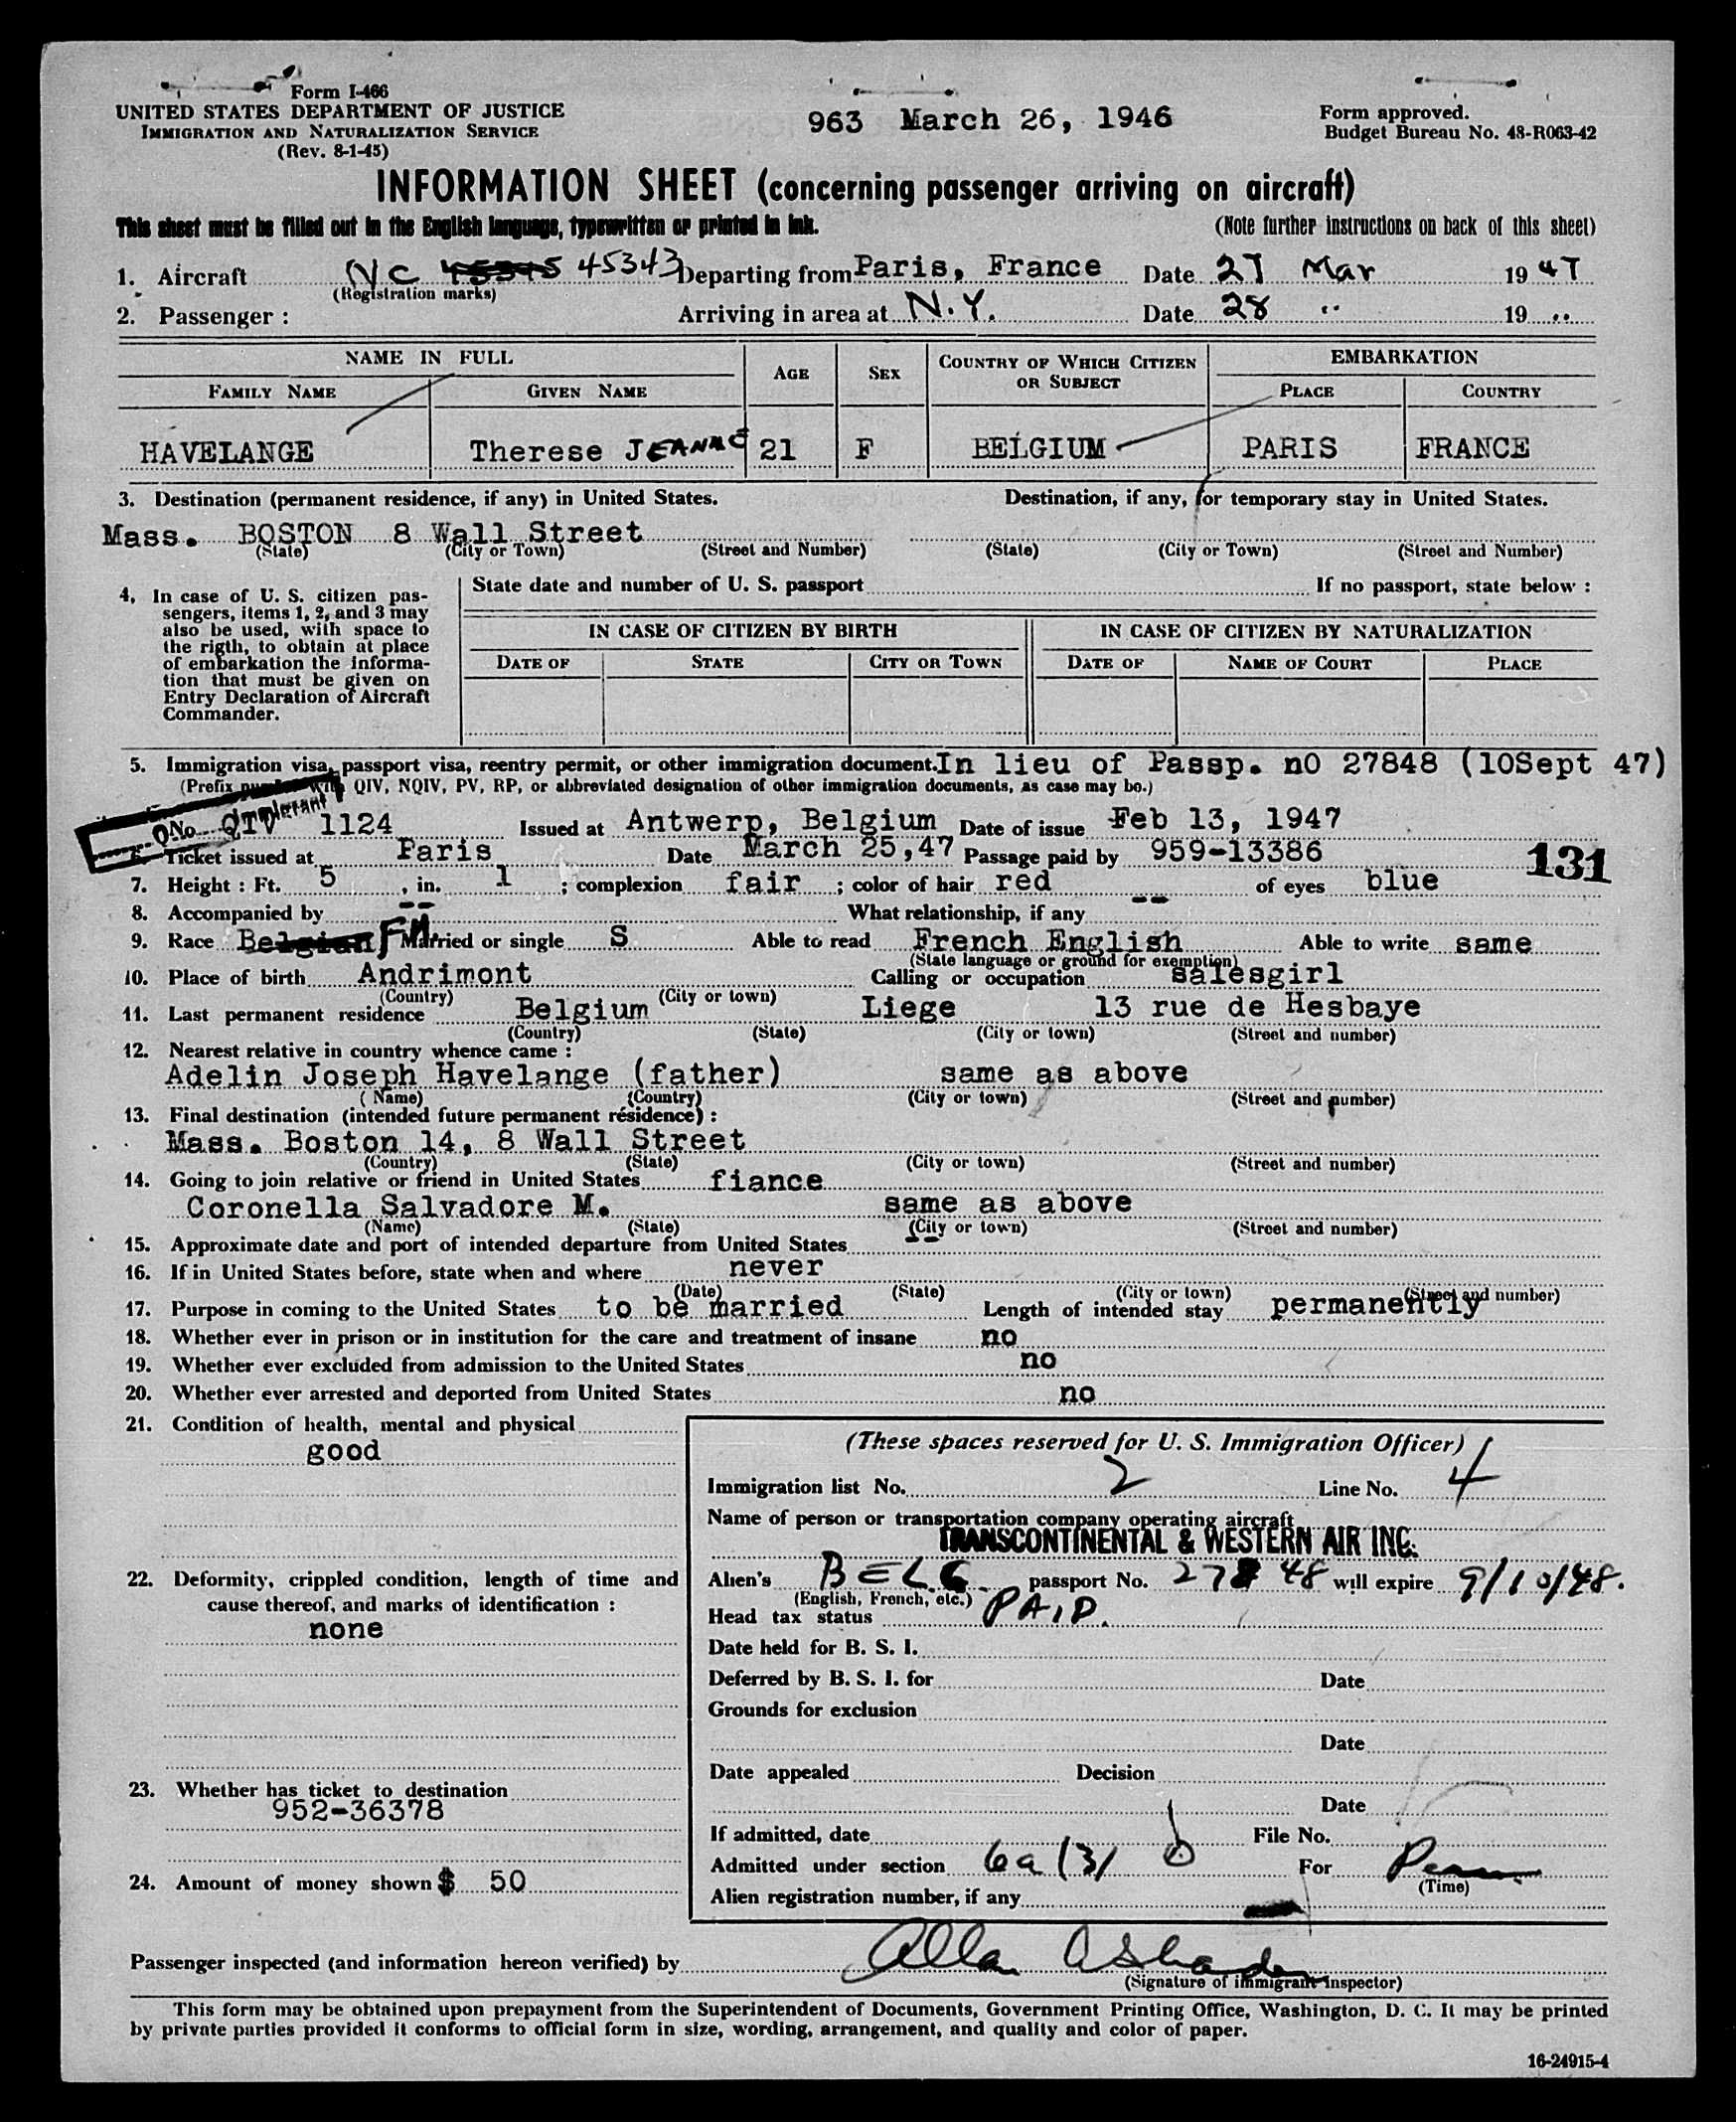 Form I-466
UNITED STATES DEPARTMENT OF JUSTICE
IMMIGRATION AND NATURALIZATION SERVICE
(Rev. 8-1-45)
963 March 26, 1946
Form approved.
Budget Bureau No. 48-R063-42
INFORMATION SHEET (concerning passenger arriving on aircraft)
This sheet must be filled out in the English language, typewritten or printed in ink.
(Note further instructions on back of this sheet)
1. Aircraft NC 45343 Departing from Paris, France Date 27 Mar 1947
(Registration marks)
2. Passenger : Arriving in area at N.Y. Date 28 " 19 "
NAME IN FULL
FAMILY NAME GIVEN NAME AGE SEX COUNTRY OF WHICH CITIZEN OR SUBJECT EMBARKATION
PLACE COUNTRY
HAVELANGE Therese JEANNE 21 F BELGIUM PARIS FRANCE
3. Destination (permanent residence, if any) in United States. Destination, if any, for temporary stay in United States.
Mass. BOSTON 8 Wall Street
(State) (City or Town) (Street and Number) (State) (City or Town) (Street and Number)
4. In case of U. S. citizen pas-
sengers, items 1, 2, and 3 may
also be used, with space to
the rigth, to obtain at place
of embarkation the informa-
tion that must be given on
Entry Declaration of Aircraft
Commander.
State date and number of U. S. passport If no passport, state below :
IN CASE OF CITIZEN BY BIRTH IN CASE OF CITIZEN BY NATURALIZATION
DATE OF STATE CITY OR TOWN DATE OF NAME OF COURT PLACE
5. Immigration visa, passport visa, reentry permit, or other immigration document. In lieu of Passp. nO 27848 (10Sept 47)
(Prefix number with QIV, NQIV, PV, RP, or abbreviated designation of other immigration documents, as case may be.)
No. QIV 1124 Issued at Antwerp, Belgium Date of issue Feb 13, 1947
6. Ticket issued at Paris Date March 25,47 Passage paid by 959-13386
131
7. Height : Ft. 5 , in. 1 ; complexion fair ; color of hair red of eyes blue
8. Accompanied by -- What relationship, if any --
9. Race Belgian FM. Married or single S Able to read French English Able to write same
(State language or ground for exemption)
10. Place of birth Andrimont Calling or occupation salesgirl
(Country) (City or town)
11. Last permanent residence Belgium Liege 13 rue de Hesbaye
(Country) (State) (City or town) (Street and number)
12. Nearest relative in country whence came :
Adelin Joseph Havelange (father) same as above
(Name) (Country) (City or town) (Street and number)
13. Final destination (intended future permanent résidence) :
Mass. Boston 14, 8 Wall Street
(Country) (State) (City or town) (Street and number)
14. Going to join relative or friend in United States fiance
Coronella Salvadore M. same as above
(Name) (State) (City or town) (Street and number)
15. Approximate date and port of intended departure from United States --
16. If in United States before, state when and where never
(Date) (State) (City or town) (Street and number)
17. Purpose in coming to the United States to be married Length of intended stay permanently
18. Whether ever in prison or in institution for the care and treatment of insane no
19. Whether ever excluded from admission to the United States no
20. Whether ever arrested and deported from United States no
21. Condition of health, mental and physical
good
22. Deformity, crippled condition, length of time and
cause thereof, and marks of identification :
none
23. Whether has ticket to destination
952-36378
24. Amount of money shown $ 50
(These spaces reserved for U. S. Immigration Officer)
Immigration list No. 2 Line No. 4
Name of person or transportation company operating aircraft
TRANSCONTINENTAL & WESTERN AIR INC.
Alien's BELG. passport No. 27848 will expire 9/10/48.
(English, French, etc.)
Head tax status PAID.
Date held for B. S. I.
Deferred by B. S. I. for Date
Grounds for exclusion
Date
Date appealed Decision
Date
If admitted, date File No.
Admitted under section 6a(3) For
(Time)
Alien registration number, if any
Passenger inspected (and information hereon verified) by
(Signature of immigrant inspector)
This form may be obtained upon prepayment from the Superintendent of Documents, Government Printing Office, Washington, D. C. It may be printed
by private parties provided it conforms to official form in size, wording, arrangement, and quality and color of paper.
16-24915-4